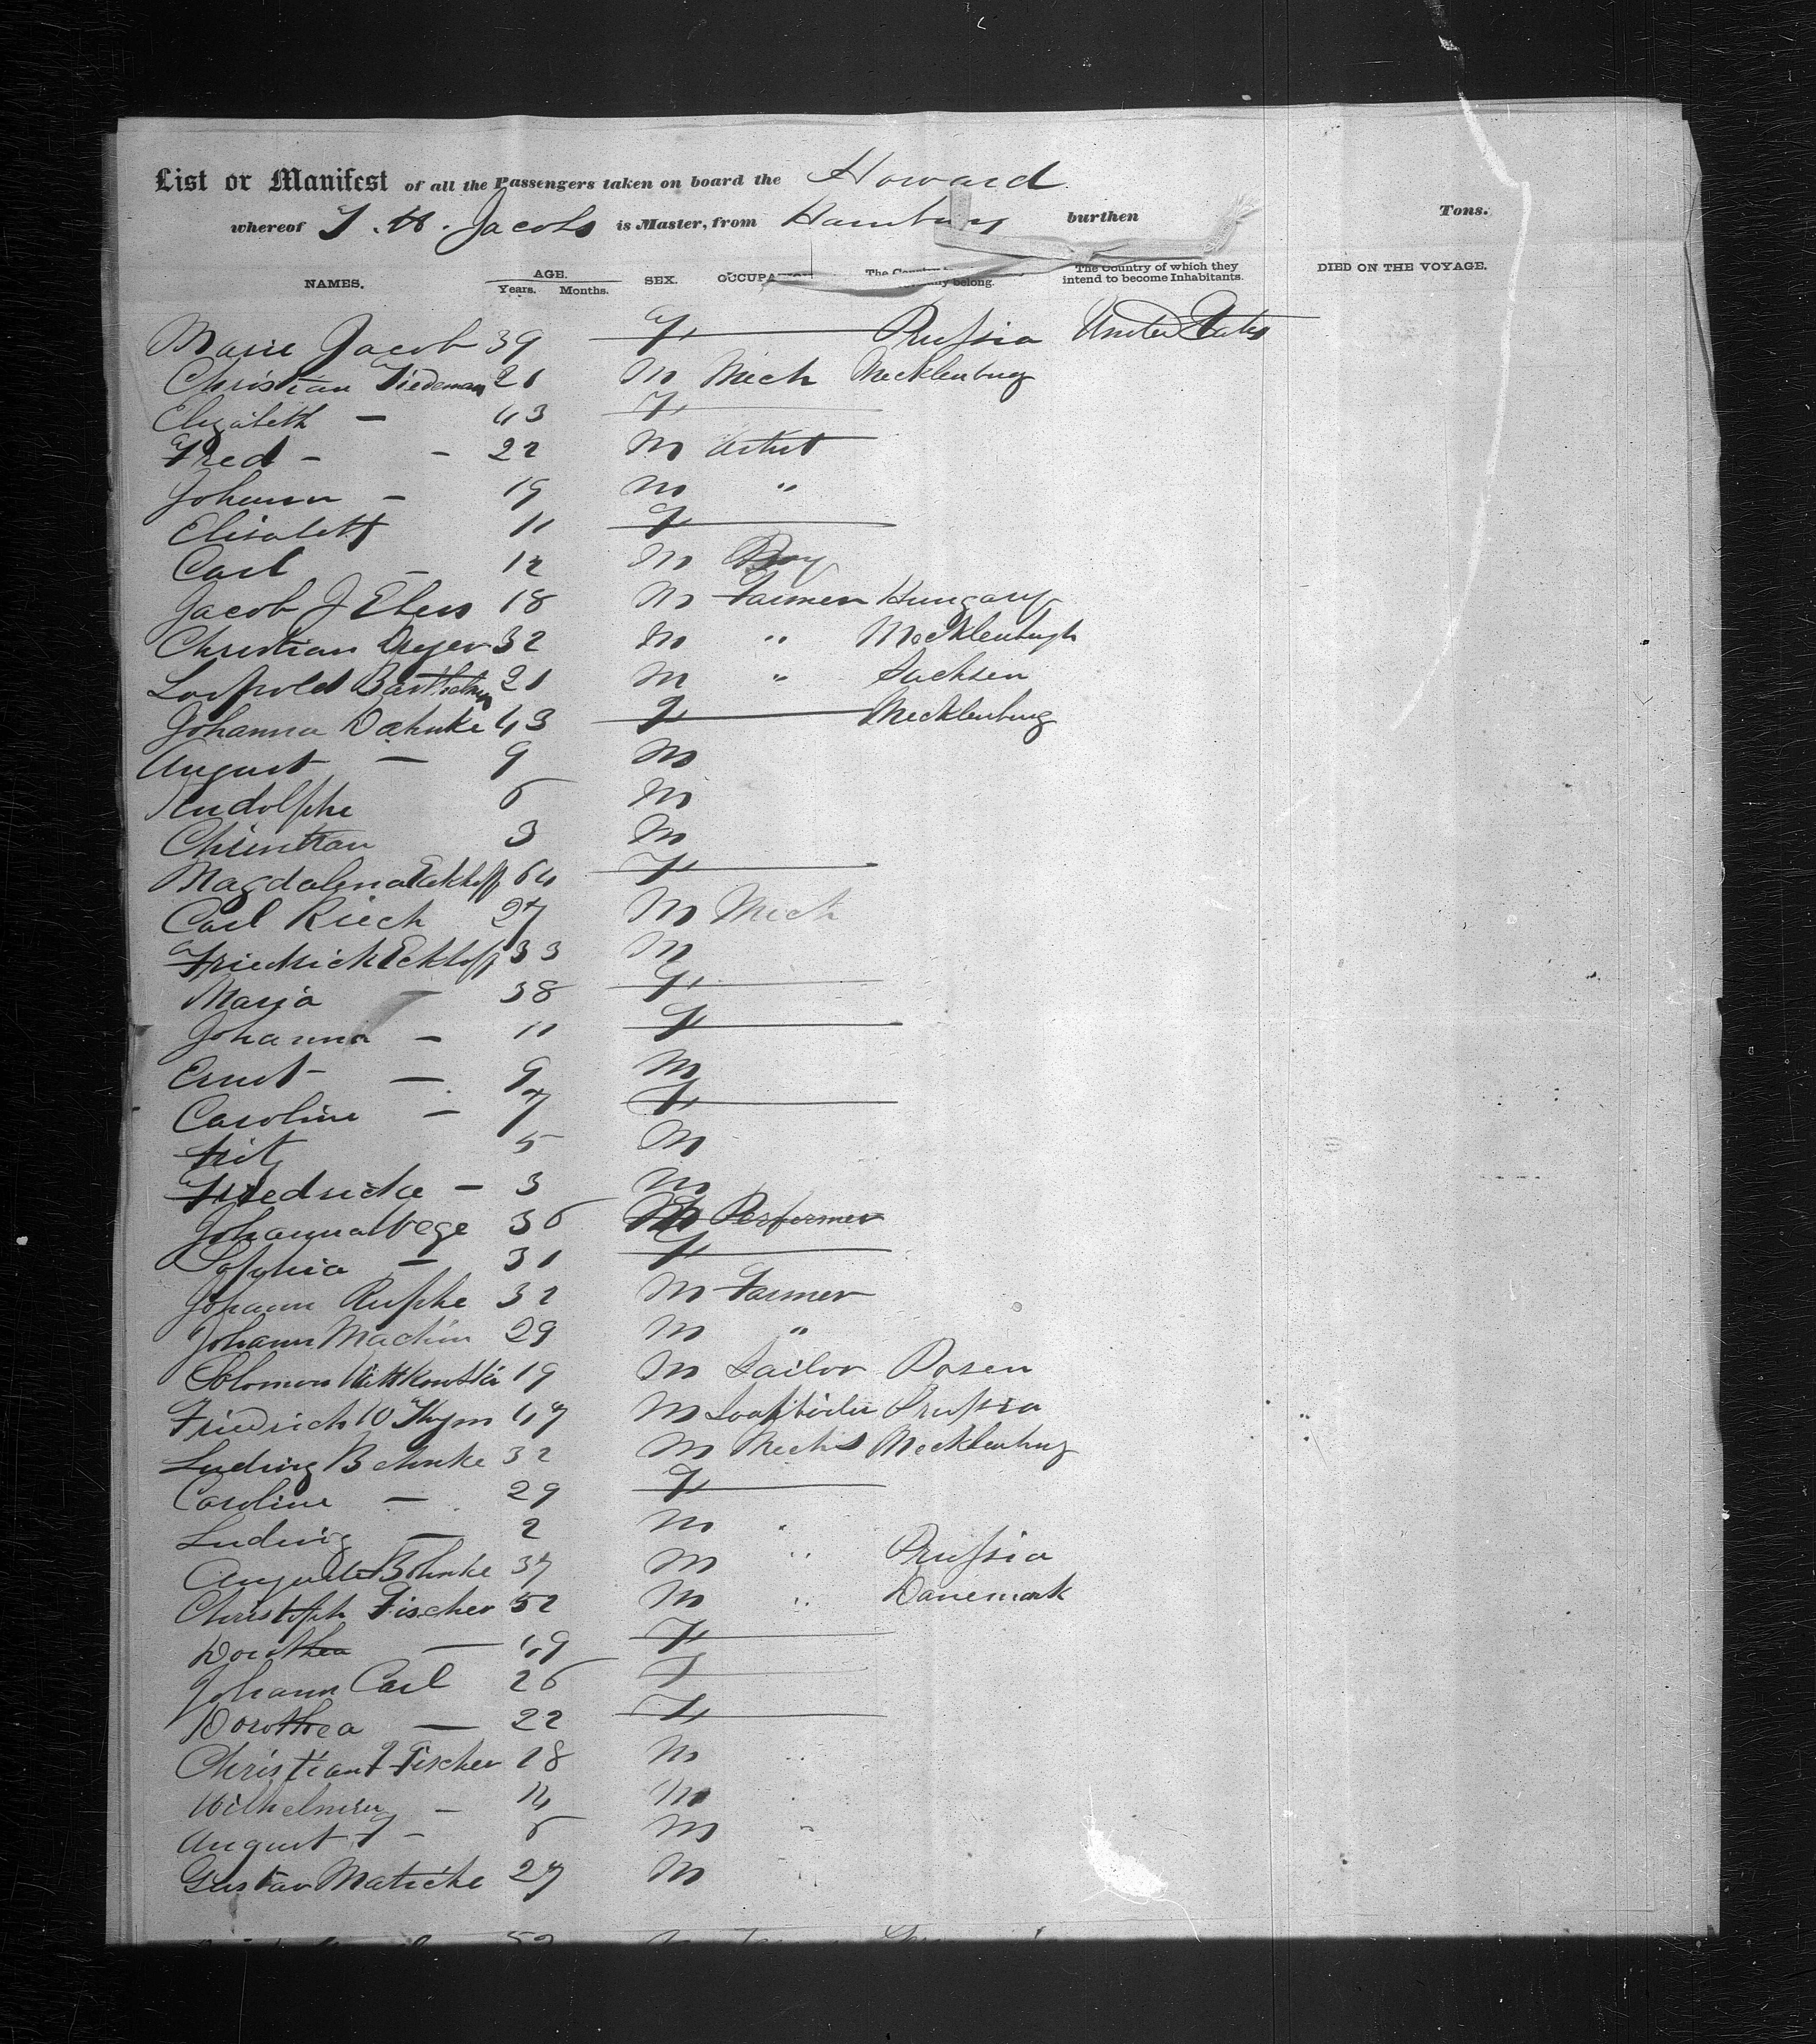 List or Manifest of all the Passengers taken on board the Howard
whereof J. H. Jacobs is Master, from Hamburg burthen Tons.
NAMES. AGE. Years. Months. SEX. OCCUPATION The Country belong. The Country of which they intend to become Inhabitants. DIED ON THE VOYAGE.
Marie Jacob 39 F Prussia United States
Christian Tiedeman 21 M Mech Mecklenburg
Elizabeth — 43 F
Fred - - 22 M Artist
Johann - 19 M "
Elisabeth 11 F
Carl - 12 M Boy
Jacob J Ehers 18 M Farmer Hungary
Christian Dreyer 32 M " Mecklenburgh
Leopold 21 M " Sachsen
Johanna Dahnke 43 F Mecklenburg
August — 9 M
Rudolphe 6 M
Christian 3 M
Magdalena Eckhoff 64 F
Carl Riech 27 M Mech
Friedrich Eckhoff 33 M
Maria — 38 F
Johanna — 11 F
Ernst — 9 M
Caroline — 7 F
Fritz 5 M
Friedricke — 3 M
Johann 36 M Performer
Sophia — 31 F
Johann 32 M Farmer
Johann Machin 29 M "
Solomon Wittkowski 19 M Tailor Posen
Friedrich W Thym 47 M Prussia
Ludwig Behnke 32 M Mechs Mecklenburg
Caroline — 29 F
Ludwig — 2 M "
August Bohnke 37 M " Prussia
Christoph Fischer 52 M " Danemark
Dorothea — 49 F
Johann Carl 26 F
Dorothea — 22 F
Christian F Fischer 18 M
Wilhelmin — 14 M
August F - 6 M "
Gustav Maticke 27 M